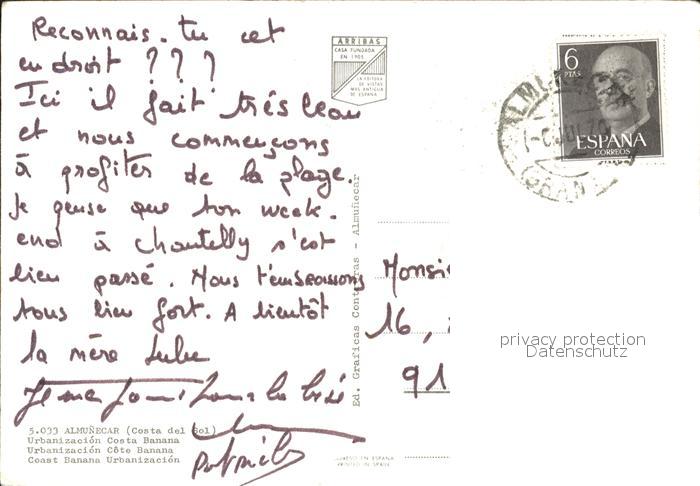 Reconnais-tu cet
endroit ? ? ?
Ici il fait très beau
et nous commençons
à profiter de la plage.
Je pense que ton week-
end à Chantelly s'est
bien passé. Nous t'embrassons
tous bien fort. A bientôt
la mère
5.033 ALMUÑECAR (Costa del Sol)
Urbanización Costa Banana
Urbanización Côte Banane
Coast Banana Urbanización
ARRIBAS
CASA FUNDADA
EN 1905
LA EDITORA
DE VISTAS
MAS ANTIGUA
DE ESPAÑA
Ed. Graficas Contreras - Almuñecar
IMPRESO EN ESPAÑA
PRINTED IN SPAIN
6
PTAS
ESPAÑA
CORREOS
Monsi
16,
91
privacy protection
Datenschutz